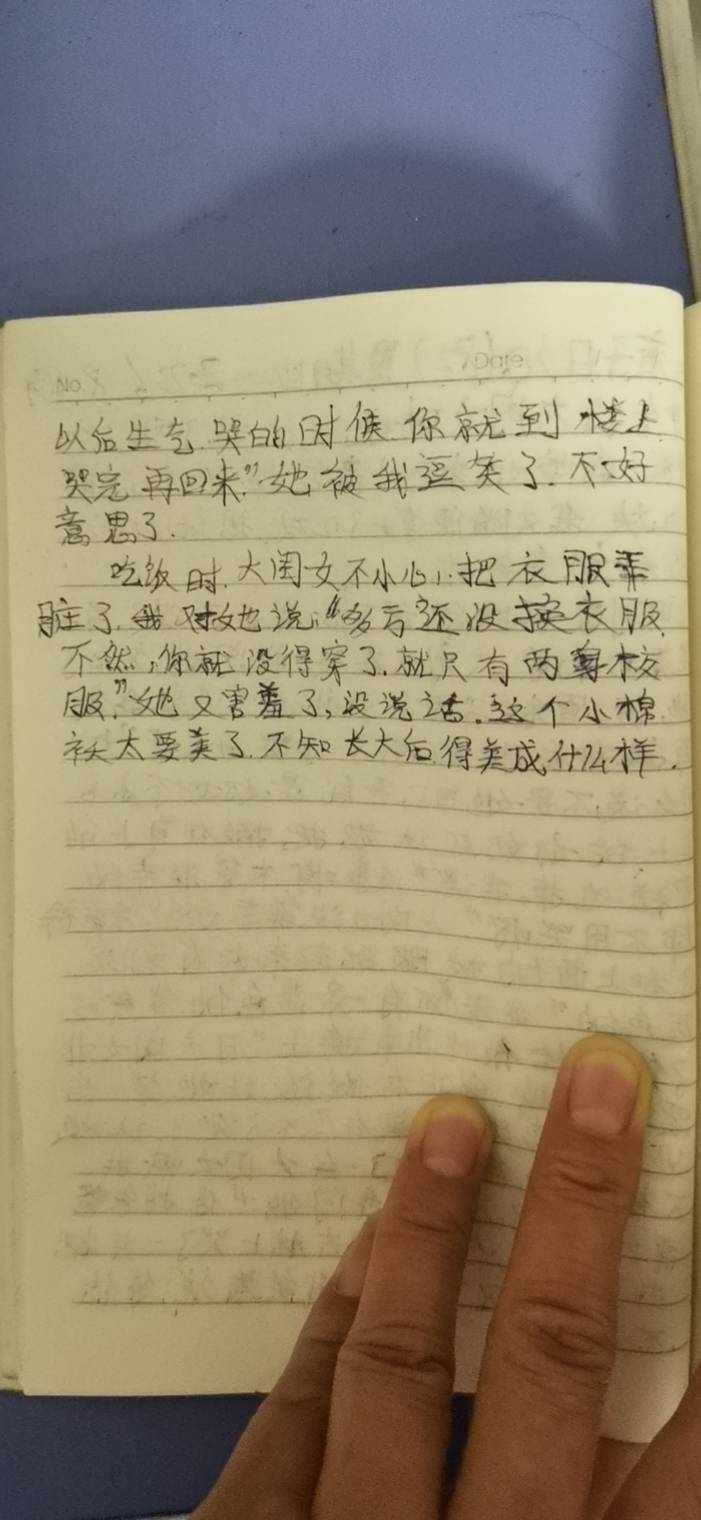 No.
Date
以后生气哭的时候你就到楼上
哭完再回来”她被我逗笑了.不好
意思了.
吃饭时.大闺女不小心,把衣服弄
脏了.我对她说:“多亏还没换衣服,
不然,你就没得穿了.就只有两身校
服.”她又害羞了,没说话.这个小棉
袄太要美了.不知长大后得美成什么样.